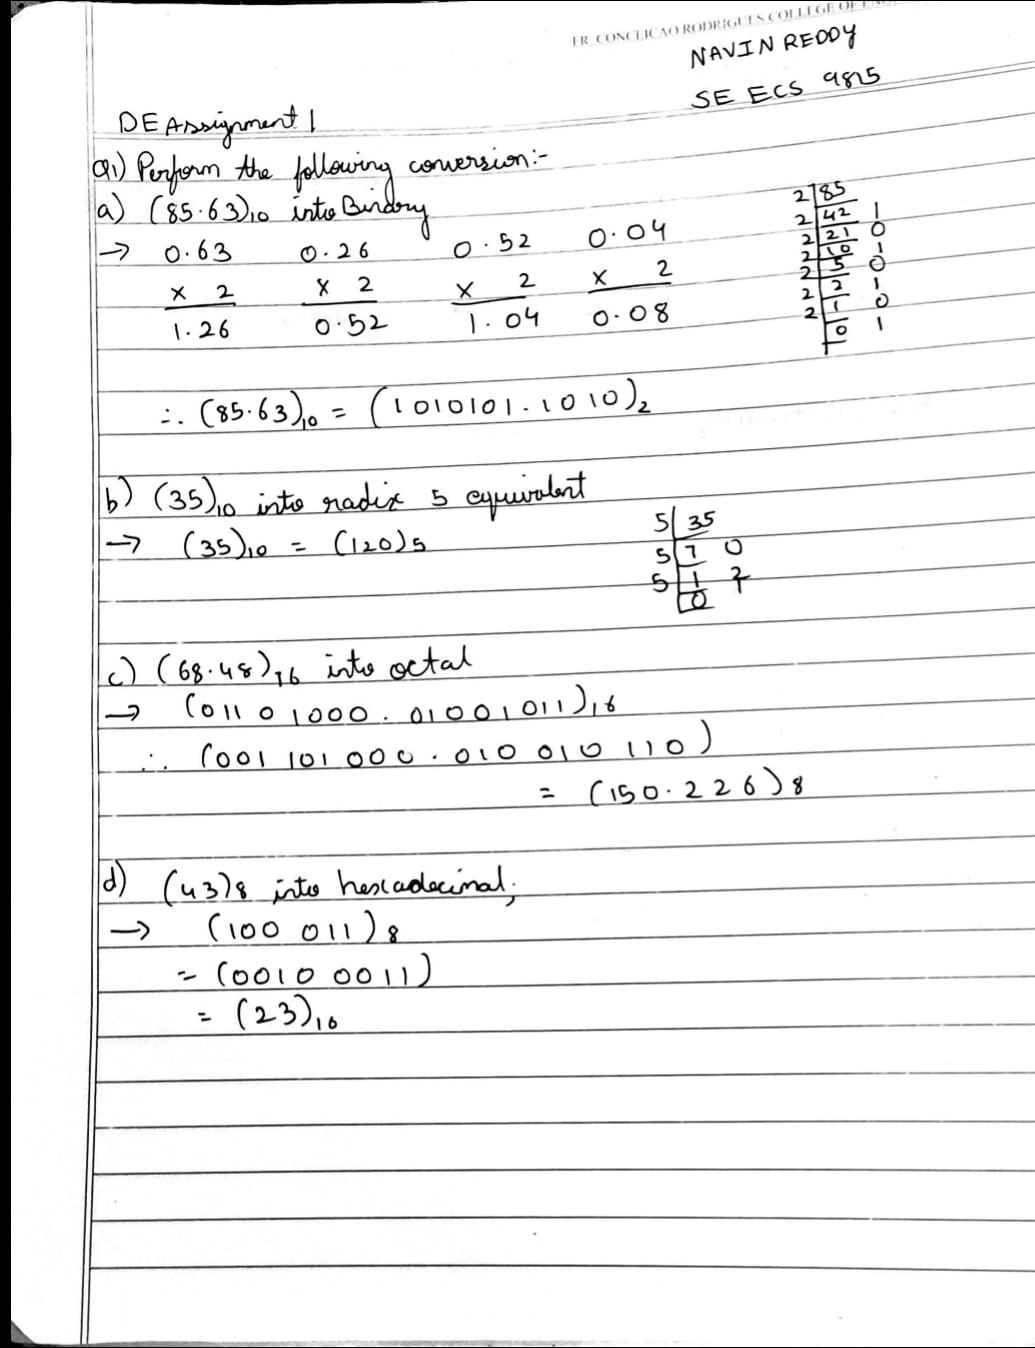 FR. CONCEICAO RODRIGUES COLLEGE OF
NAVIN REDDY
SE ECS 9815
DE Assignment 1
Q1) Perform the following conversion:-
a) (85.63)10 into Binary
→ 0.63 0.26 0.52 0.04
x 2 x 2 x 2 x 2
1.26 0.52 1.04 0.08
2 85
2 42 1
2 21 0
2 10 1
2 5 0
2 2 1
2 1 0
0 1
∴ (85.63)10 = (1010101.1010)2
b) (35)10 into radix 5 equivalent
→ (35)10 = (120)5
5 35
5 7 0
5 1 2
0
c) (68.48)16 into octal
→ (0110 1000 . 01001011)16
∴ (001 101 000 . 010 010 110)
= (150.226)8
d) (43)8 into hexadecimal;
→ (100 011)8
= (0010 0011)
= (23)16